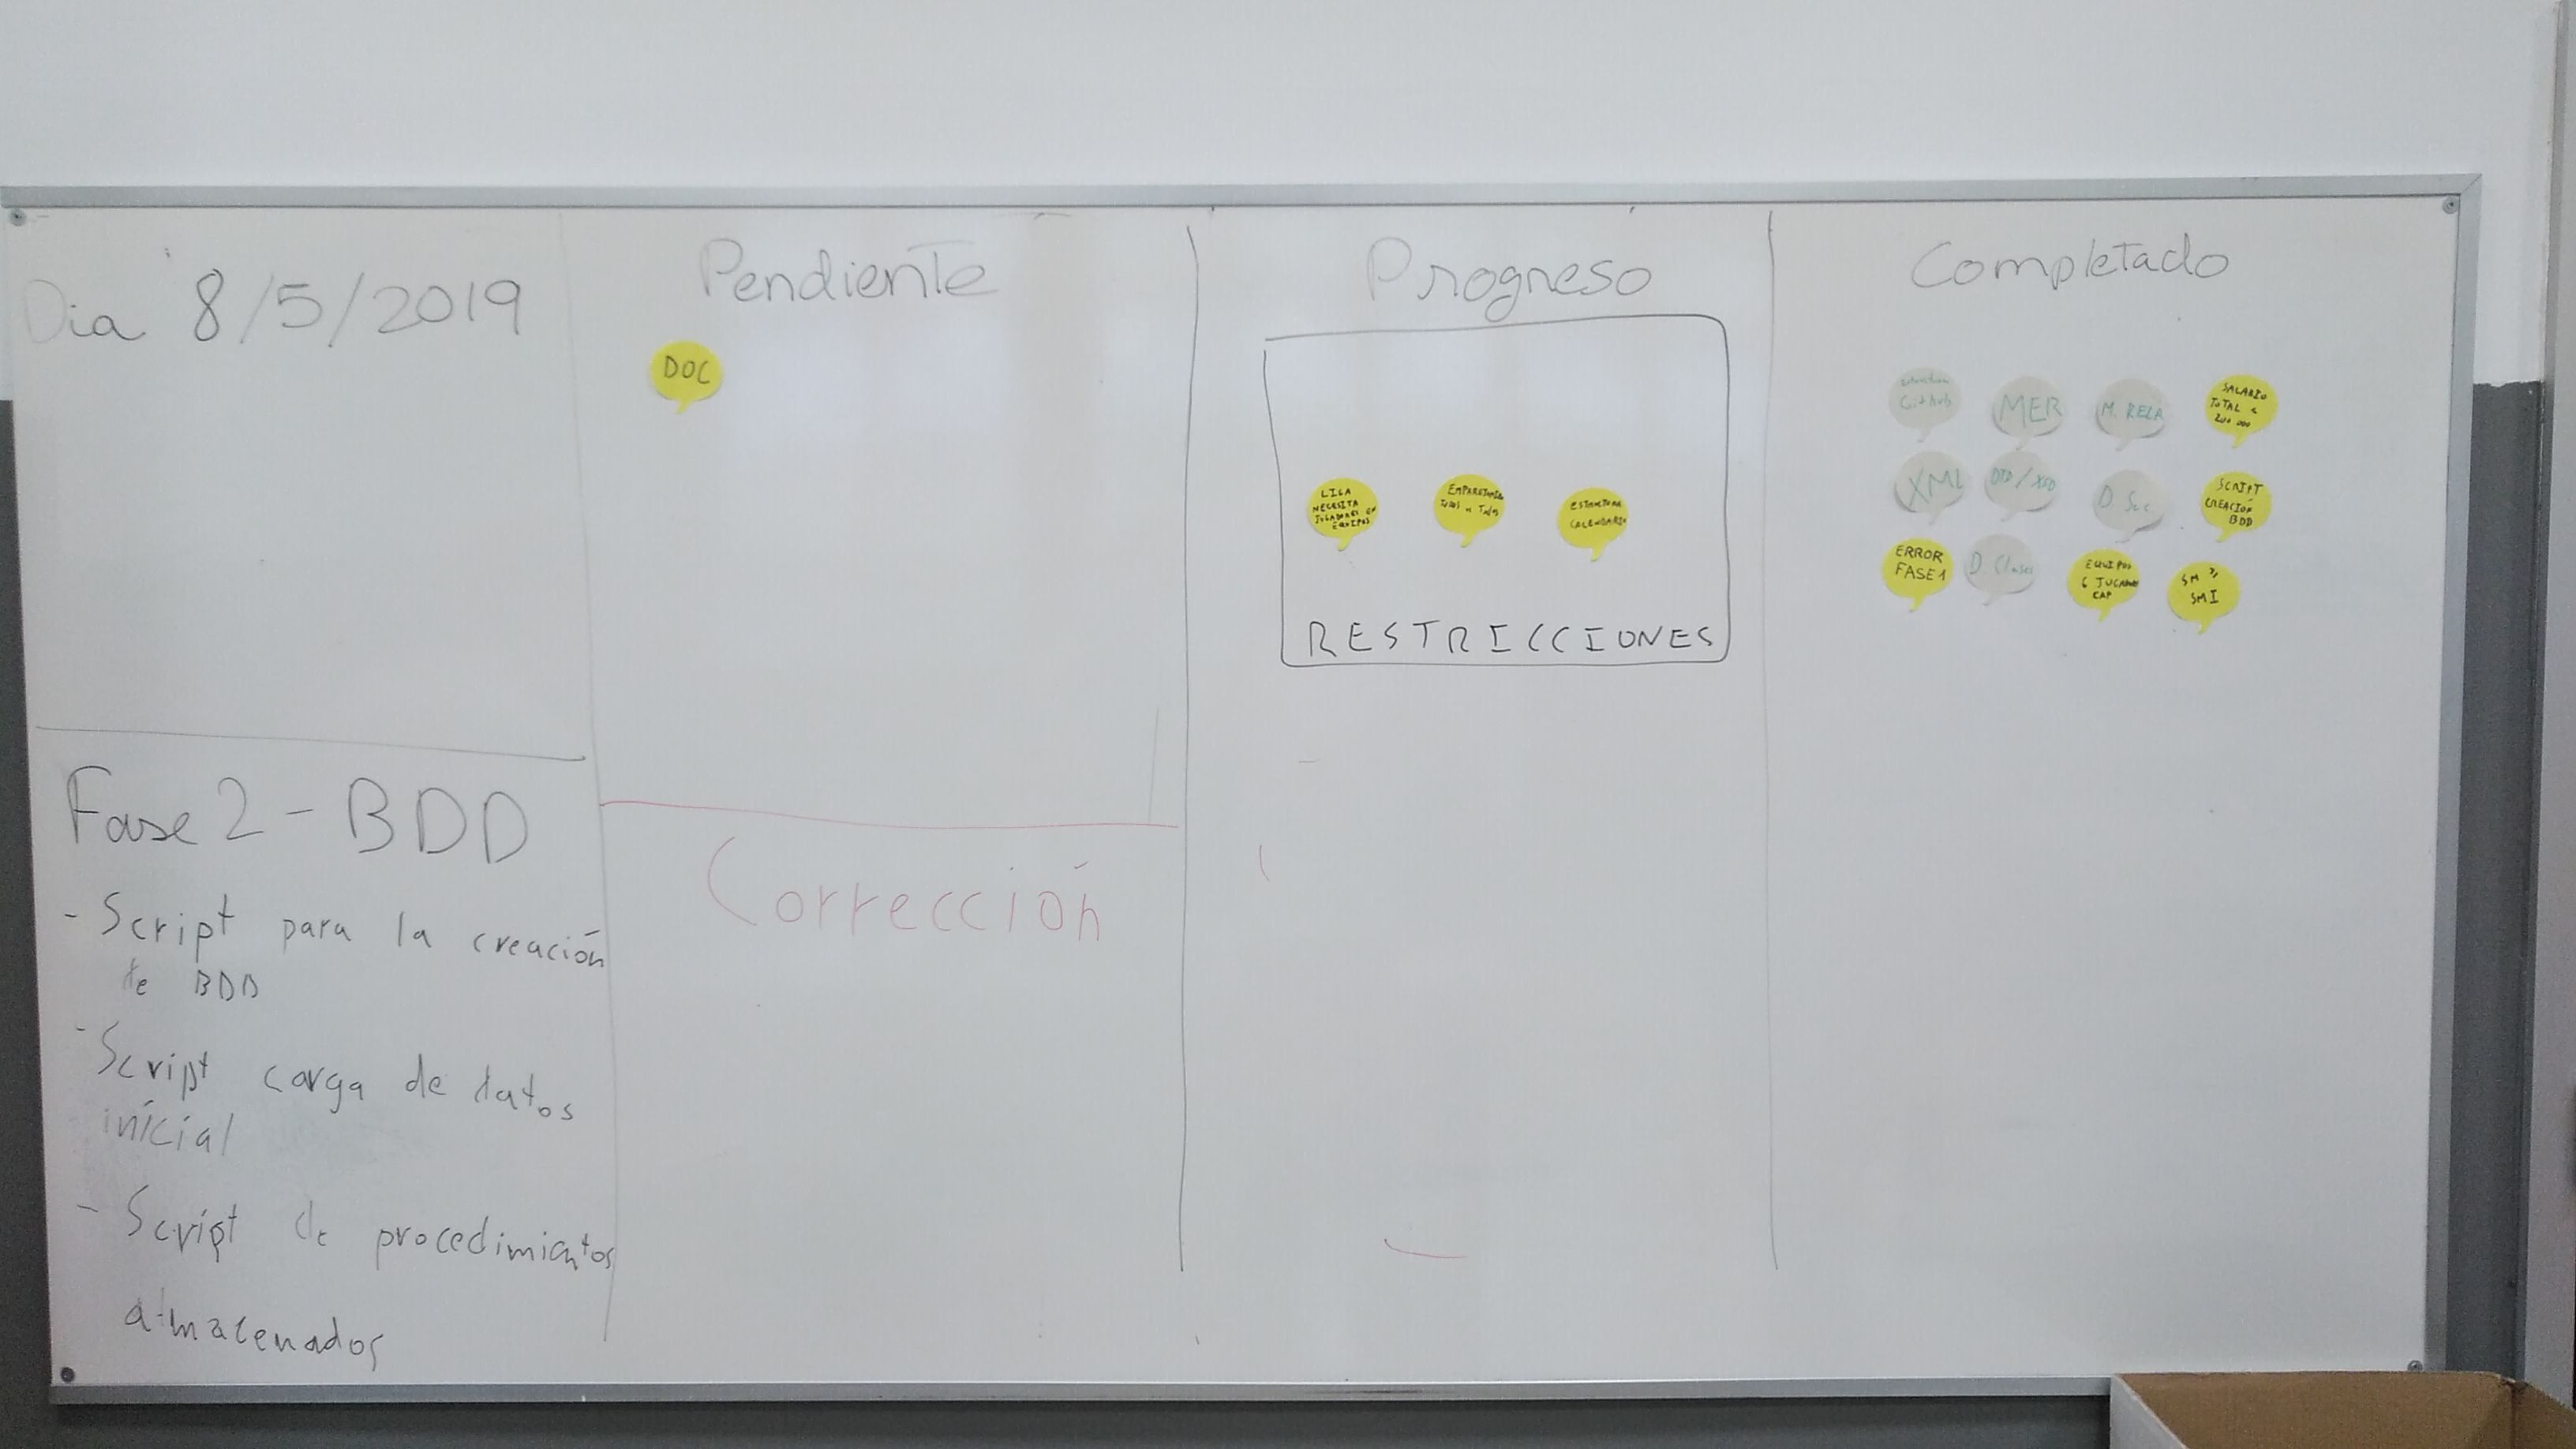 Dia 8/5/2019
Fase 2 - BDD
- Script para la creación
de BDD
- Script carga de datos
inicial
- Script de procedimientos
almacenados
Pendiente
DOC
Corrección
Progreso
LIGA
NECESITA
JUGADORES EN
EQUIPOS
EMPAREJAMIENTO
TODOS A TODOS
ESTRUCTURA
CALENDARIO
RESTRICCIONES
Completado
GitHub
MER
M. RELA
SALARIO
TOTAL <
200 000
XML
DTD/XSD
D. Sec
SCRIPT
CREACIÓN
BDD
ERROR
FASE 1
D. Clases
EQUIPOS
6 JUGADORES
CAP
SM >,
SMI